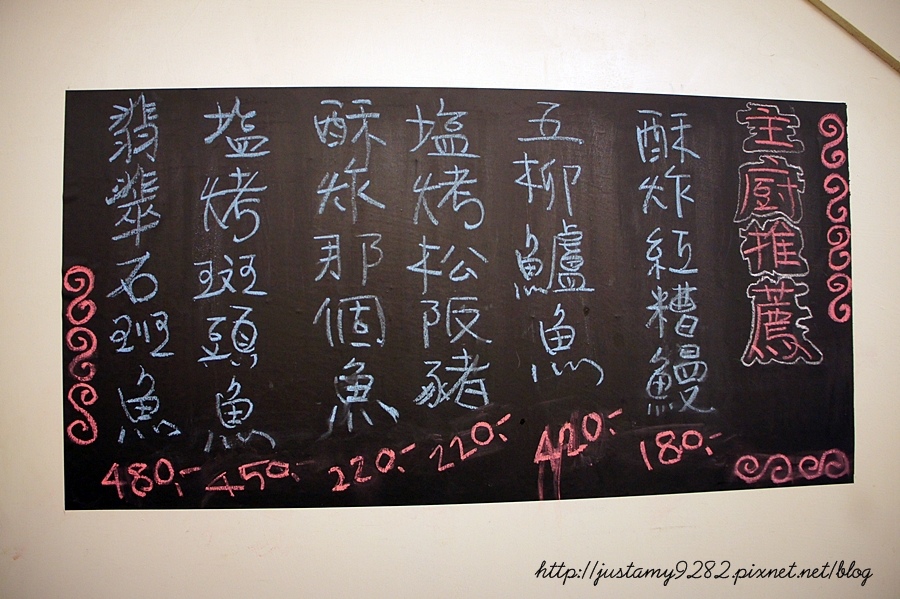 主廚推薦
酥炸紅糟鰻
180.-
五柳鱸魚
420.-
塩烤松阪豬
220.-
酥炸那個魚
220.-
塩烤斑頭魚
450.-
翡翠石斑魚
480.-
http://justamy9282.pixnet.net/blog